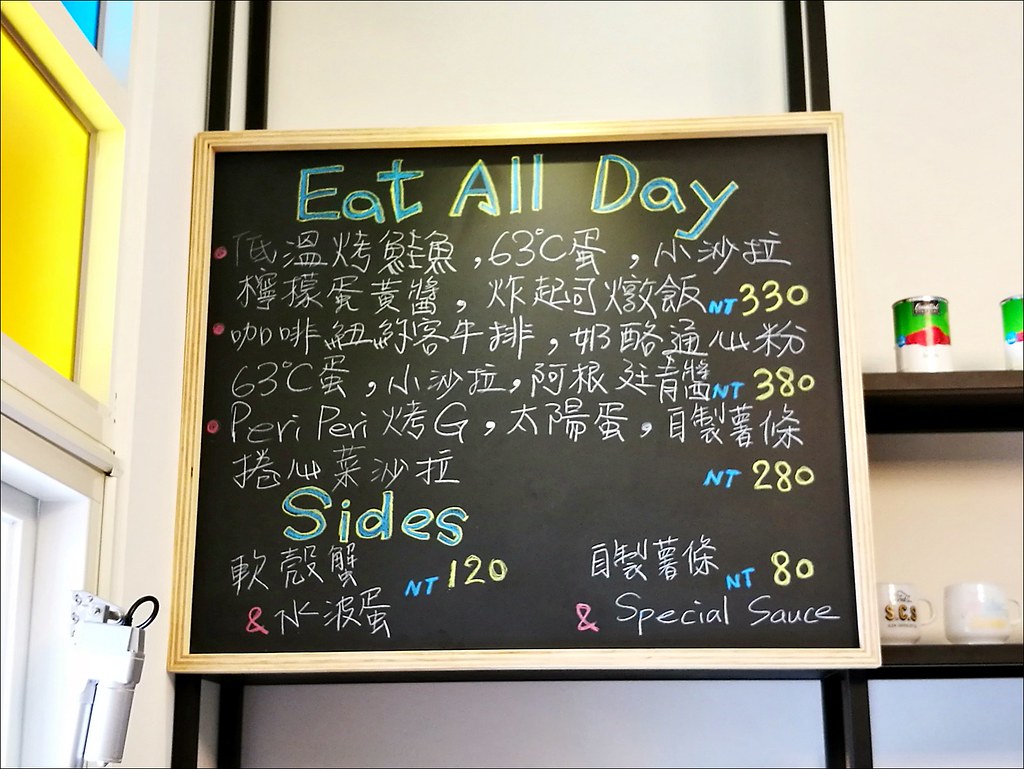 Eat All Day
低溫烤鮭魚,63℃蛋,小沙拉
檸檬蛋黃醬,炸起司燉飯 NT 330
咖啡紐約客牛排,奶酪通心粉
63℃蛋,小沙拉,阿根廷青醬 NT 380
Peri Peri 烤G,太陽蛋,自製薯條
捲心菜沙拉 NT 280
Sides
軟殼蟹 NT 120
& 水波蛋
自製薯條 NT 80
& Special Sauce
S.C.S